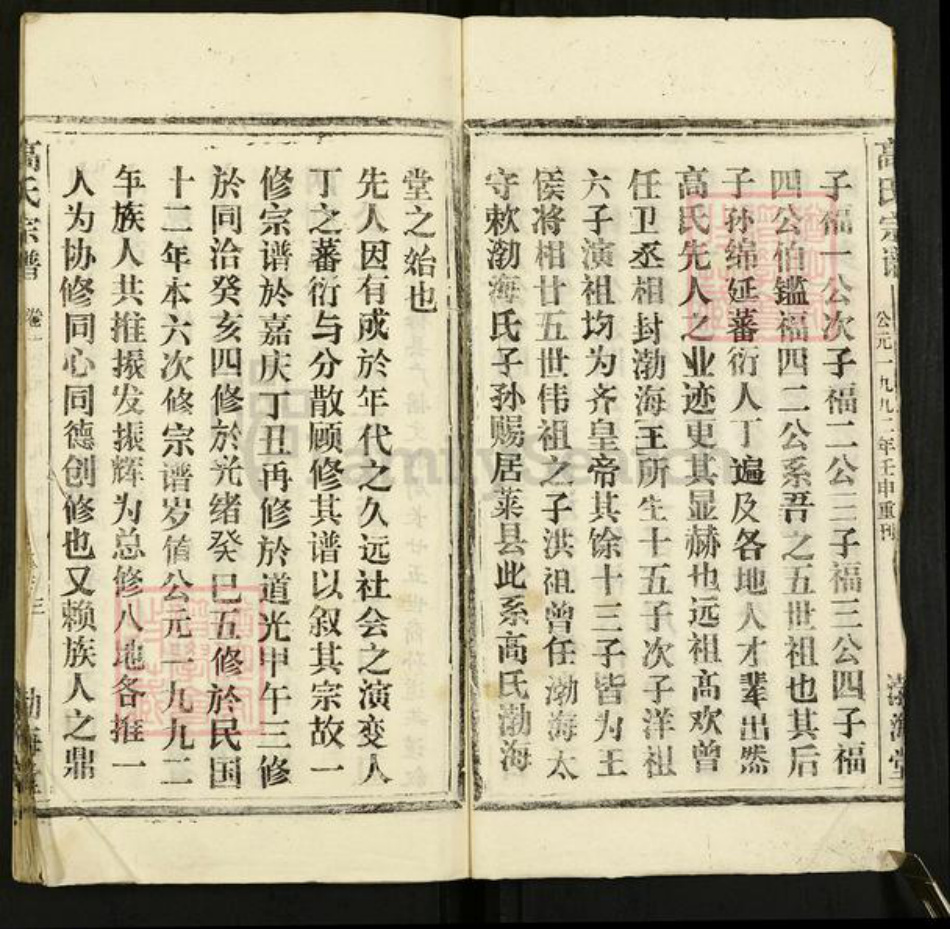 高氏宗谱
公元一九九二年壬申重刊
渤海堂
子福一公次子福二公三子福三公四子福
四公伯鑑福四二公系吾之五世祖也其后
子孙绵延蕃衍人丁遍及各地人才辈出然
高氏先人之业迹更其显赫也远祖高欢曾
任卫丞相封渤海王所生十五子次子洋祖
六子演祖均为齐皇帝其馀十三子皆为王
侯将相廿五世伟祖之子洪祖曾任渤海太
守敕渤海氏子孙赐居莱县此系高氏渤海
堂之始也
先人因有感於年代之久远社会之演变人
丁之蕃衍与分散顾修其谱以叙其宗故一
修宗谱於嘉庆丁丑再修於道光甲午三修
於同治癸亥四修於光绪癸巳五修於民国
十二年本六次修宗谱岁值公元一九九二
年族人共推振发振辉为总修八地各推一
人为协修同心同德创修也又赖族人之鼎
高氏宗谱
卷一
三
渤海堂
FamilySearch